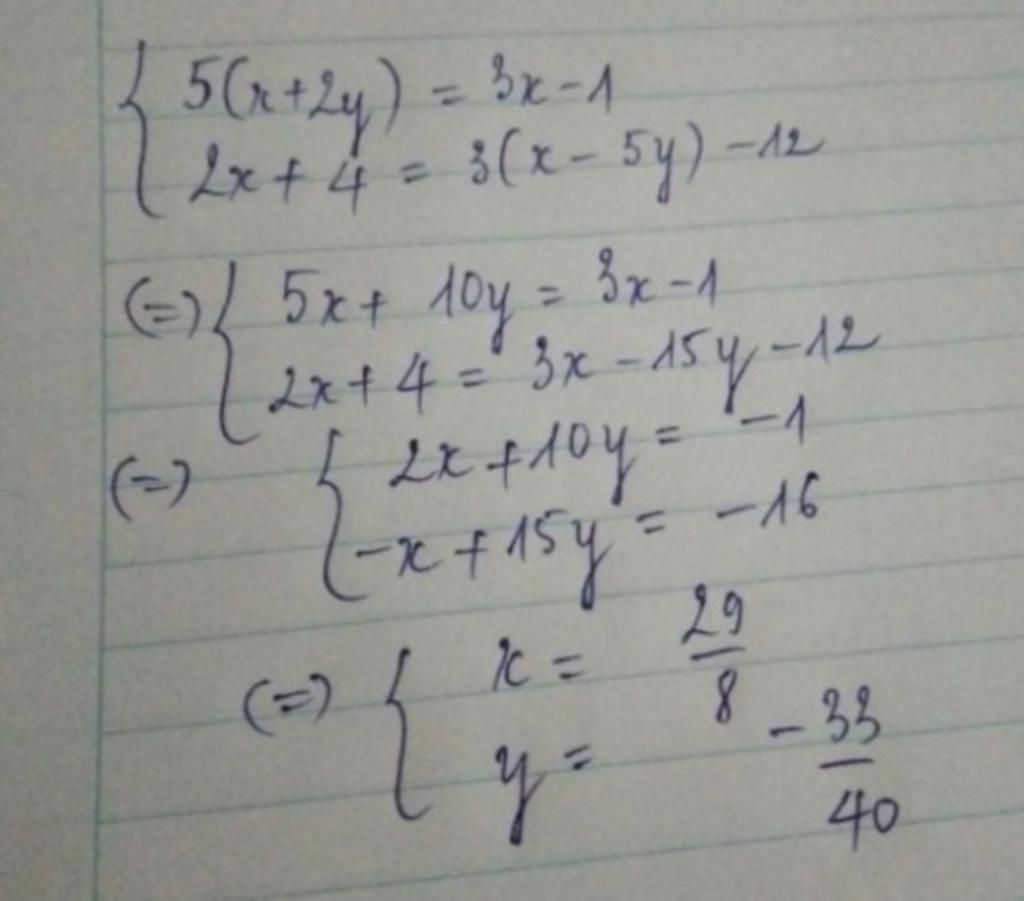 { 5(x+2y) = 3x-1
2x+4 = 3(x-5y)-12
(=) { 5x+10y = 3x-1
2x+4 = 3x-15y-12
(=) { 2x+10y = -1
-x+15y = -16
(=) { x = 29/8
y = -33/40